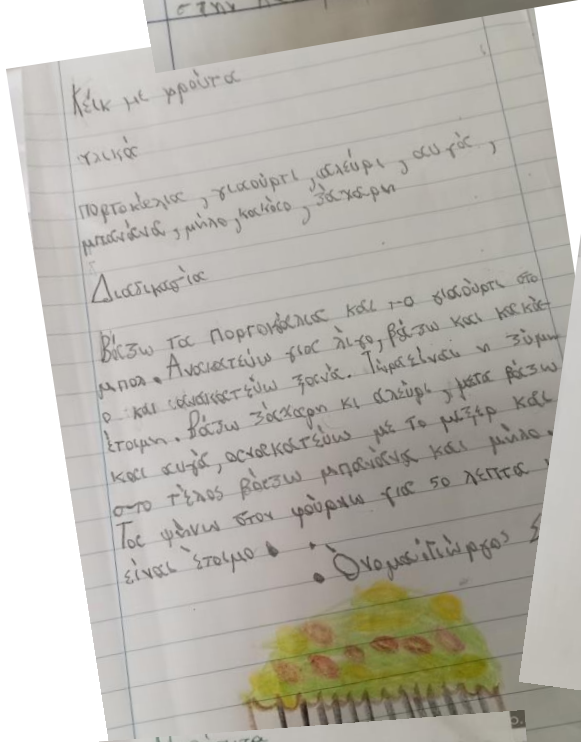 στην
Κέικ με φρούτα
υλικά
πορτοκάλια, γιαούρτι, αλεύρι, αυγά,
μπανάνα, μήλο, κακάο, ζάχαρη
Διαδικασία
Βάζω τα πορτοκάλια και το γιαούρτι στο
μπολ. Ανακατεύω για λίγο, βάζω και κακά-
ο και ανακατεύω ξανά. Τώρα είναι η ζύμη
έτοιμη. Βάζω ζάχαρη κι αλεύρι, μετά βάζω
και αυγά, ανακατεύω με το μίξερ και
στο τέλος βάζω μπανάνα και μήλο.
Το ψήνω στον φούρνω για 50 λεπτά
είναι έτοιμο
Όνομα: Γιώργος Σ